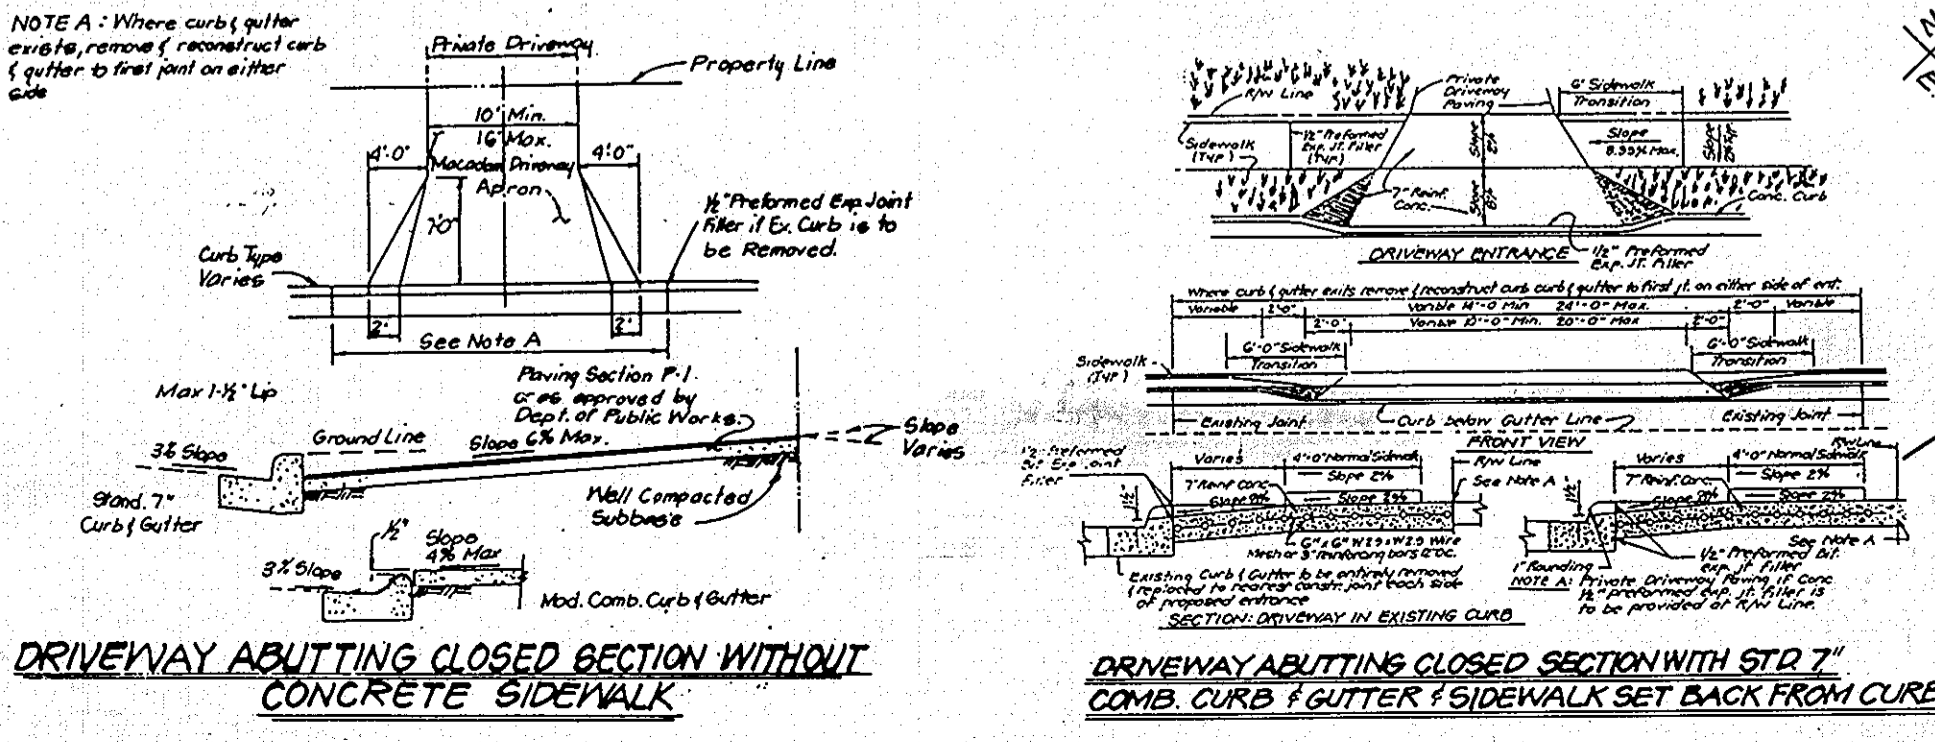 NOTE A: Where curb & gutter
exists, remove & reconstruct curb
& gutter to first joint on either
side
Private Driveway
Property Line
10' Min.
16' Max.
4'-0"
4'-0"
Macadam Driveway
Apron
7'-0"
1/2" Preformed Exp. Joint
Filler if Ex. Curb is to
be Removed.
Curb Type
Varies
2'
2'
See Note A
Max 1-1/2" Lip
Paving Section P-1
or as approved by
Dept. of Public Works.
Ground Line
Slope 6% Max.
Slope
Varies
3% Slope
Stand. 7"
Curb & Gutter
Well Compacted
Subbase
1/2"
Slope
4% Max
3% Slope
Mod. Comb. Curb & Gutter
DRIVEWAY ABUTTING CLOSED SECTION WITHOUT
CONCRETE SIDEWALK
N
E
R/W Line
Private
Driveway
Paving
6' Sidewalk
Transition
Sidewalk
(TYP)
1/2" Preformed
Exp. Jt. Filler
(TYP)
Slope
2%
Slope
8.33% Max.
Slope
2% Typ
7" Reinf.
Conc.
Slope
Conc. Curb
DRIVEWAY ENTRANCE
1/2" Preformed
Exp. JT. Filler
Where curb & gutter exits remove & reconstruct curb curb & gutter to first jt. on either side of ent.
Variable
2'-0"
Varible 14'-0 Min 24'-0" Max.
2'-0"
Varible
2'-0"
Varible 10'-0" Min. 20'-0" Max
2'-0"
6'-0" Sidewalk
Transition
6'-0" Sidewalk
Transition
Sidewalk
(TYP)
Existing Joint
Curb below Gutter Line
Existing Joint
FRONT VIEW
1/2" Preformed
Bit Exp Joint
Filler
Varies
4'-0" Normal Sidewalk
Slope 2%
R/W Line
See Note A
1 1/2"
7" Reinf Conc
Slope
Slope 2%
6" x 6" W2.9 x W2.9 Wire
Mesh or 3" reinforcing bars 12" OC.
Existing Curb & Gutter to be entirely removed
& replaced to nearest constr. joint each side
of proposed entrance
SECTION: DRIVEWAY IN EXISTING CURB
R/W Line
Varies
4'-0" Normal Sidewalk
Slope 2%
1 1/2"
7" Reinf. Conc.
Slope
Slope 2%
See Note A
1" Rounding
1/2" Preformed Bit.
exp. jt. filler
NOTE A: Private Driveway Paving if Conc
1/2" preformed exp. jt. filler is
to be provided at R/W Line.
DRIVEWAY ABUTTING CLOSED SECTION WITH STD. 7"
COMB. CURB & GUTTER & SIDEWALK SET BACK FROM CURB